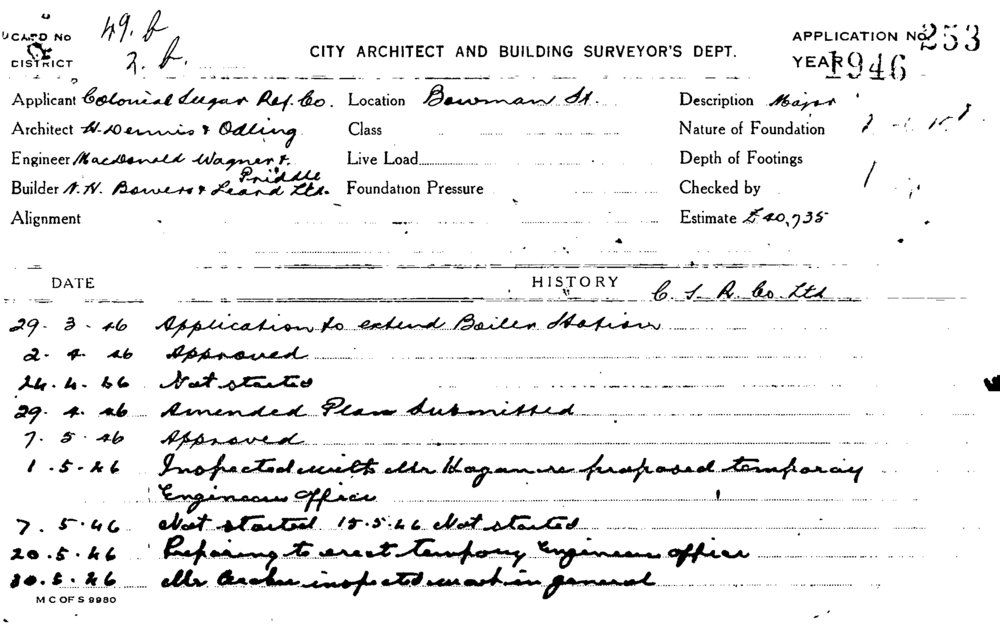 CARD No 49. b
DISTRICT 2. b.
CITY ARCHITECT AND BUILDING SURVEYOR'S DEPT.
APPLICATION No 253
YEAR 1946
Applicant Colonial Sugar Ref. Co. Location Bowman St. Description Major
Architect H. Dennis & Odling Class Nature of Foundation
Engineer MacDonald Wagner & Priddle Live Load Depth of Footings
Builder N. H. Bowers & Leard Ltd. Foundation Pressure Checked by
Alignment Estimate £40,735
DATE HISTORY C. S. R. Co. Ltd
29. 3. 46 Application to extend Boiler Station
2. 4. 46 Approved
24. 4. 46 Not started
29. 4. 46 Amended Plan Submitted
7. 5. 46 Approved
1. 5. 46 Inspected with Mr Hogan re proposed temporary
Engineers Office
7. 5. 46 Not started 15.5.46 Not started
20. 5. 46 Preparing to erect tempory Engineers office
30. 5. 46 Mr inspected work in general
M C OF S 9980